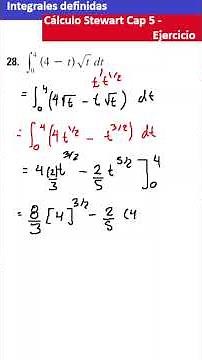 Integrales definidas
Cálculo Stewart Cap 5 -
Ejercicio
28. ∫₀⁴ (4 − t)√t dt
t¹t^(1/2)
= ∫₀⁴ (4√t − t√t) dt
= ∫₀⁴ (4t^(1/2) − t^(3/2)) dt
= 4(2)/3 t^(3/2) − 2/5 t^(5/2) ]₀⁴
= 8/3 [4]^(3/2) − 2/5 (4